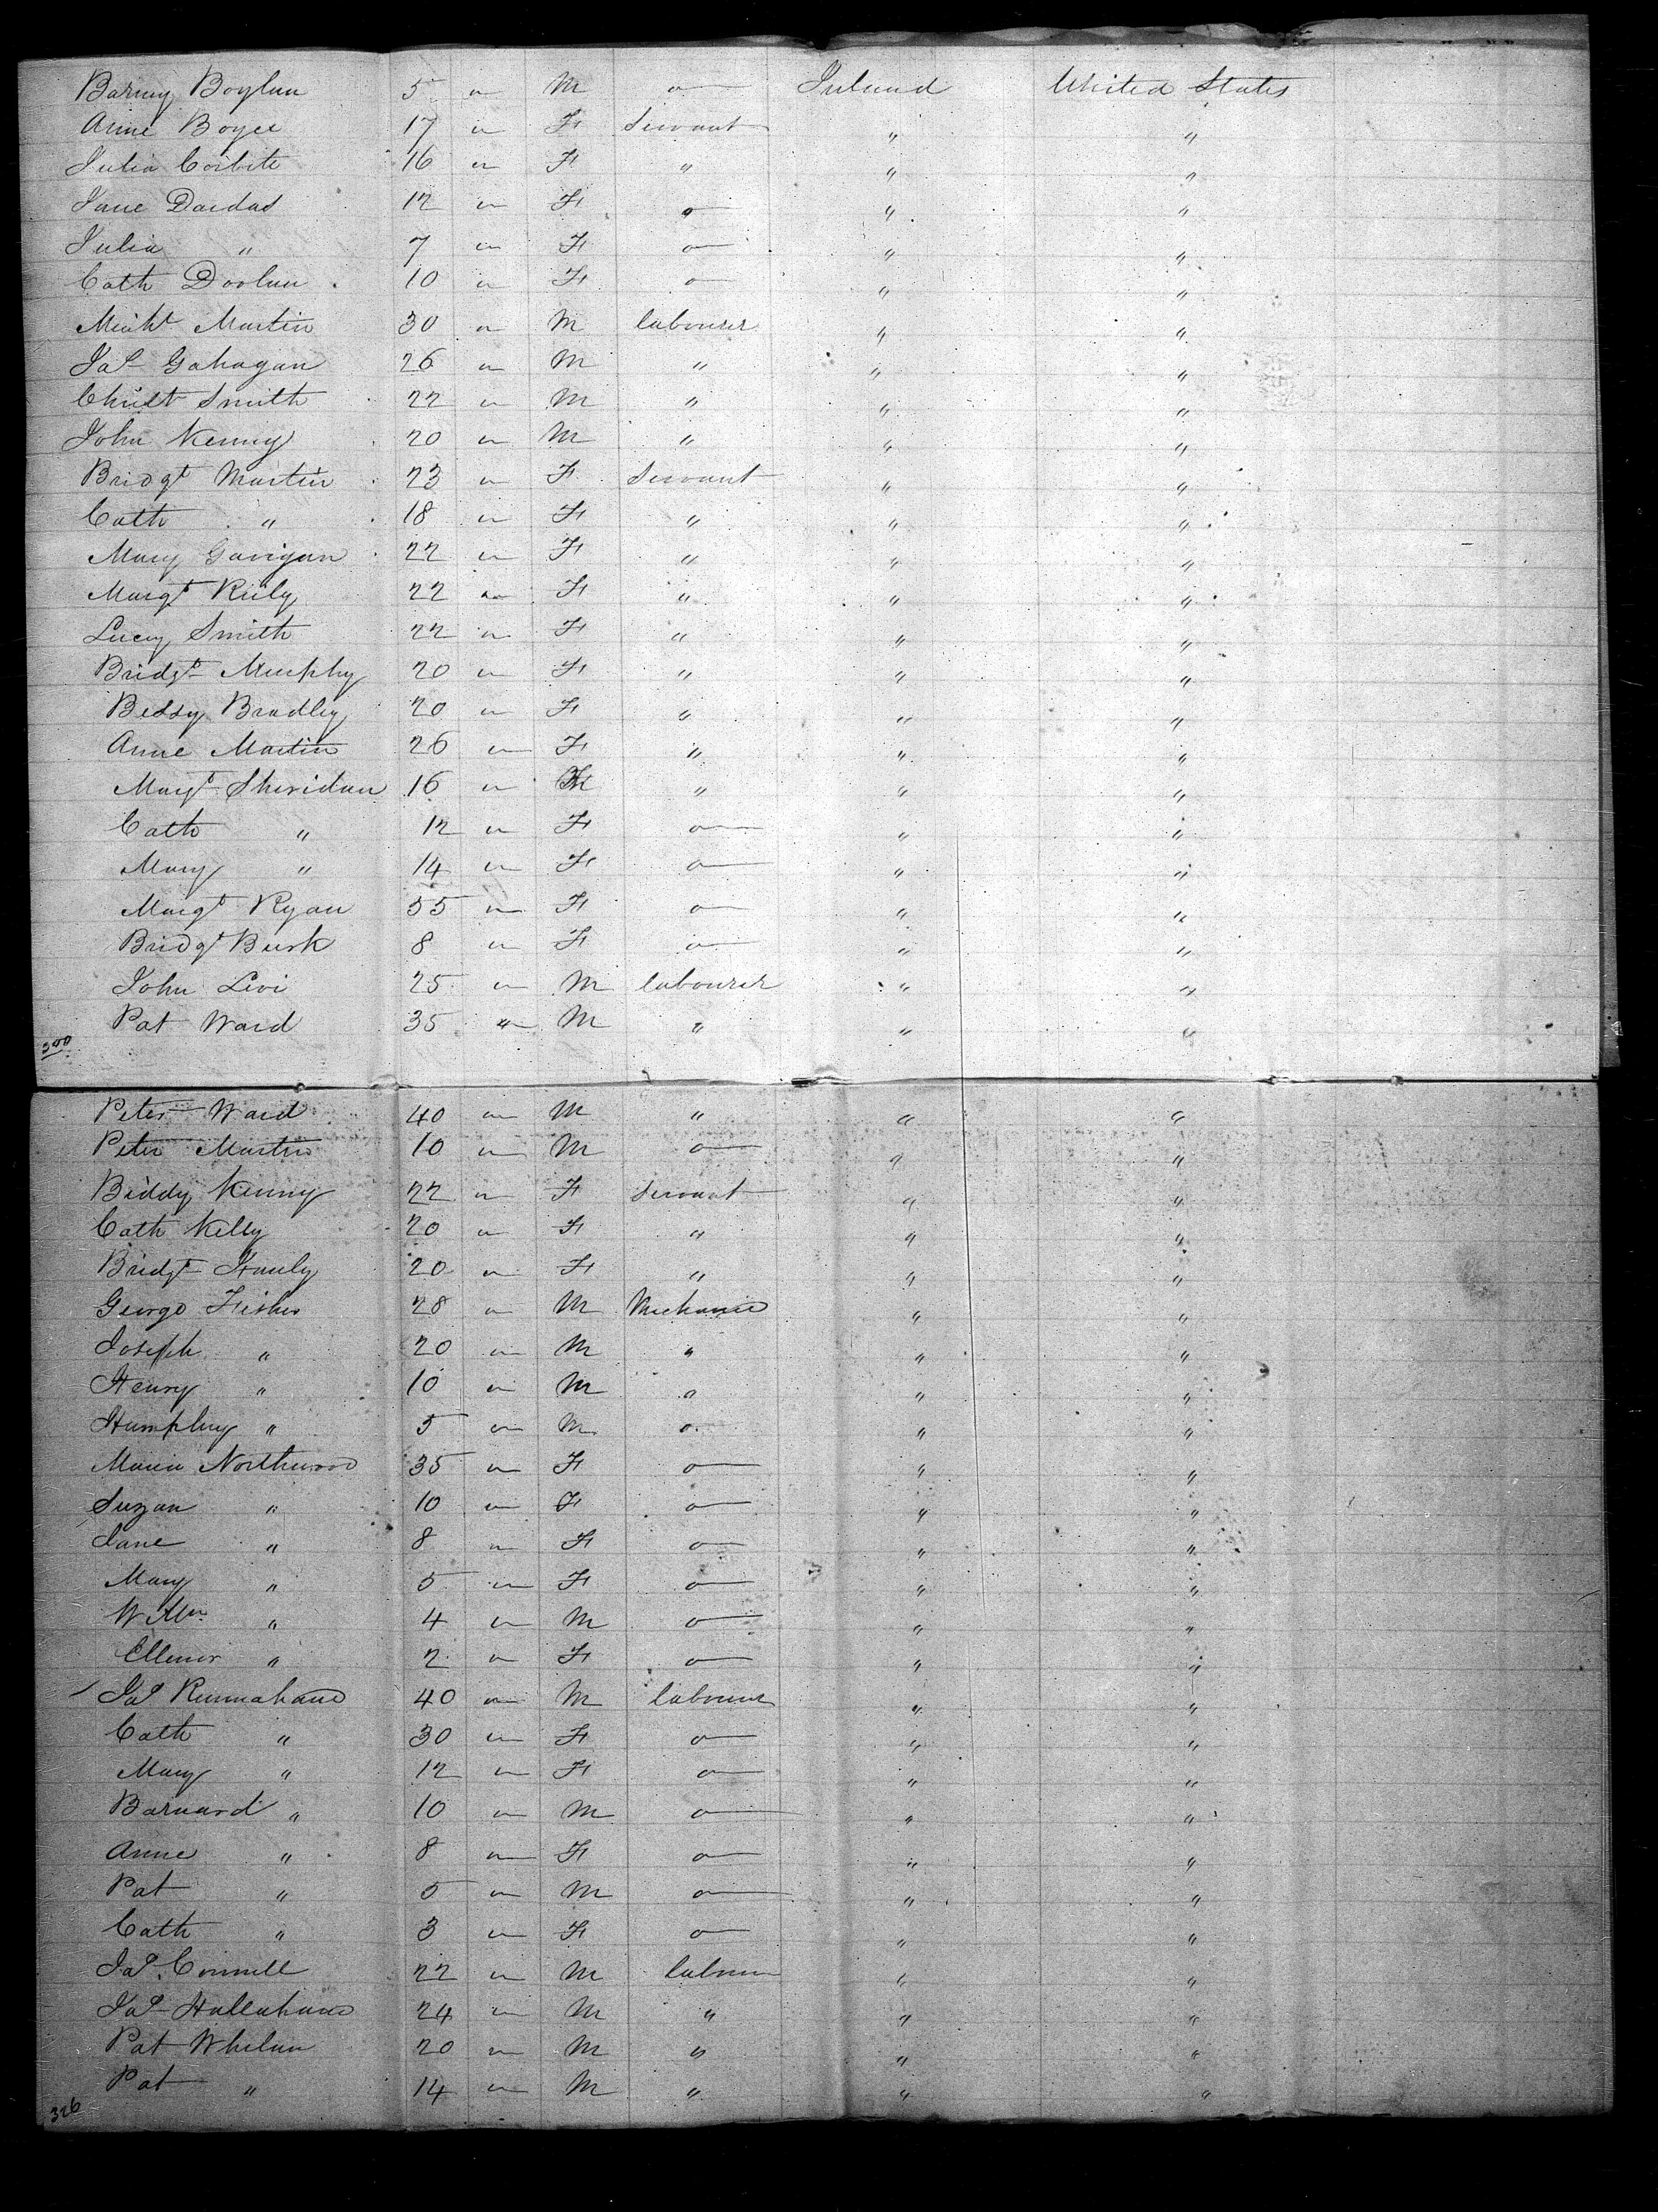 Barny Boylan 5 M Ireland United States
Anne Boyce 17 F Servant " "
Julia Corbite 16 F " " "
Jane Dardas 12 F " "
Julia " 7 F " "
Cath Doolan 10 F " "
Michl Martin 30 M labourer " "
Jas Gahagan 26 M " " "
Christ Smith 22 M " " "
John Kenny 20 M " " "
Bridgt Martin 23 F Servant " "
Cath " 18 F " " "
Mary Gavigan 22 F " " "
Margt Reily 22 F " " "
Lucy Smith 22 F " " "
Bridgt Murphy 20 F " " "
Bessy Bradley 20 F " " "
Anne Martin 26 F " " "
Margt Sheridan 16 F " " "
Cath " 12 F " "
Mary " 14 F " "
Margt Ryan 55 F " "
Bridgt Burk 8 F " "
John Levi 25 M labourer " "
Pat Ward 35 " M " " "
300
Peter Ward 40 M " " "
Peter Martin 10 M " "
Biddy Kenny 22 F Servant " "
Cath Kelly 20 F " " "
Bridgt Hanly 20 F " " "
George Fisher 28 M Mechanic " "
Joseph " 20 M " " "
Henry " 10 M " " "
Humphry " 5 M " "
Maria Northwood 35 F " "
Suzan " 10 F " "
Jane " 8 F " "
Mary " 5 F " "
Willm " 4 M " "
Ellenor " 2 F " "
Jas Runnahane 40 M labourer " "
Cath " 30 F " "
Mary " 12 F " "
Barnard " 10 M " "
Anne " 8 F " "
Pat " 5 M " "
Cath " 3 F " "
Jas Connell 22 M labourer " "
Jas Hallahane 24 M " " "
Pat Whelan 20 M " " "
Pat " 14 M " " "
326